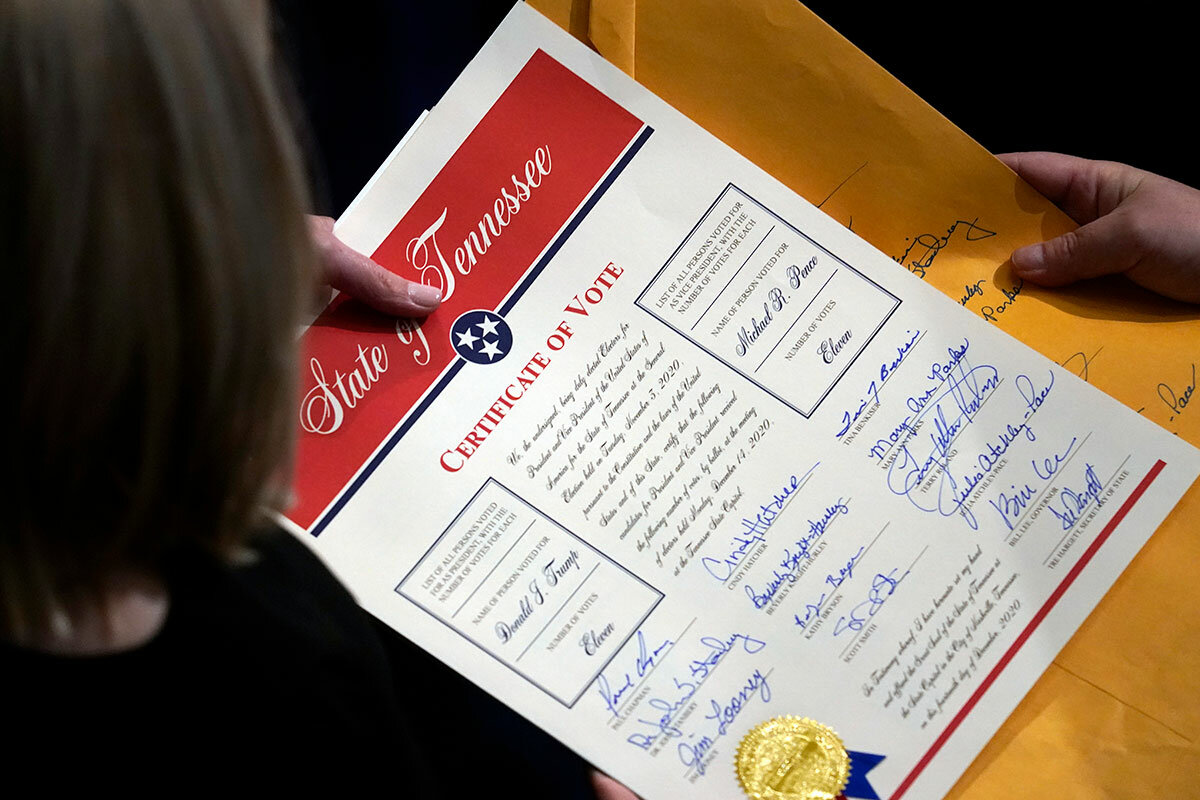 State of Tennessee
CERTIFICATE OF VOTE
We, the undersigned, being duly elected Electors for
President and Vice President of the United States of
America for the State of Tennessee at the General
Election held on Tuesday, November 3, 2020,
pursuant to the Constitution and the laws of the United
States and of this State, certify that the following
candidates for President and Vice President received
the following number of votes, by ballot, at the meeting
of electors held Monday, December 14, 2020,
at the Tennessee State Capitol.
LIST OF ALL PERSONS VOTED
FOR AS PRESIDENT, WITH THE
NUMBER OF VOTES FOR EACH
NAME OF PERSON VOTED FOR
Donald J. Trump
NUMBER OF VOTES
Eleven
LIST OF ALL PERSONS VOTED FOR
AS VICE PRESIDENT, WITH THE
NUMBER OF VOTES FOR EACH
NAME OF PERSON VOTED FOR
Michael R. Pence
NUMBER OF VOTES
Eleven
Paul Chapman
PAUL CHAPMAN
Dr. John L. Stanbery
DR. JOHN STANBERY
Jim Looney
JIM LOONEY
Cindy Hatcher
CINDY HATCHER
Beverly Knight-Hurley
BEVERLY KNIGHT-HURLEY
KATHY BRYSON
SCOTT SMITH
Tina Benkiser
TINA BENKISER
Mary Ann Parks
MARY ANN PARKS
TERRY ROLAND
Julia Atchley-Pace
JULIA ATCHLEY-PACE
Bill Lee
BILL LEE, GOVERNOR
Tre Hargett
TRE HARGETT, SECRETARY OF STATE
In Testimony whereof, I have hereunto set my hand
and affixed the Great Seal of the State of Tennessee at
the State Capitol in the City of Nashville, Tennessee,
on this fourteenth day of December, 2020
Parks
Pace